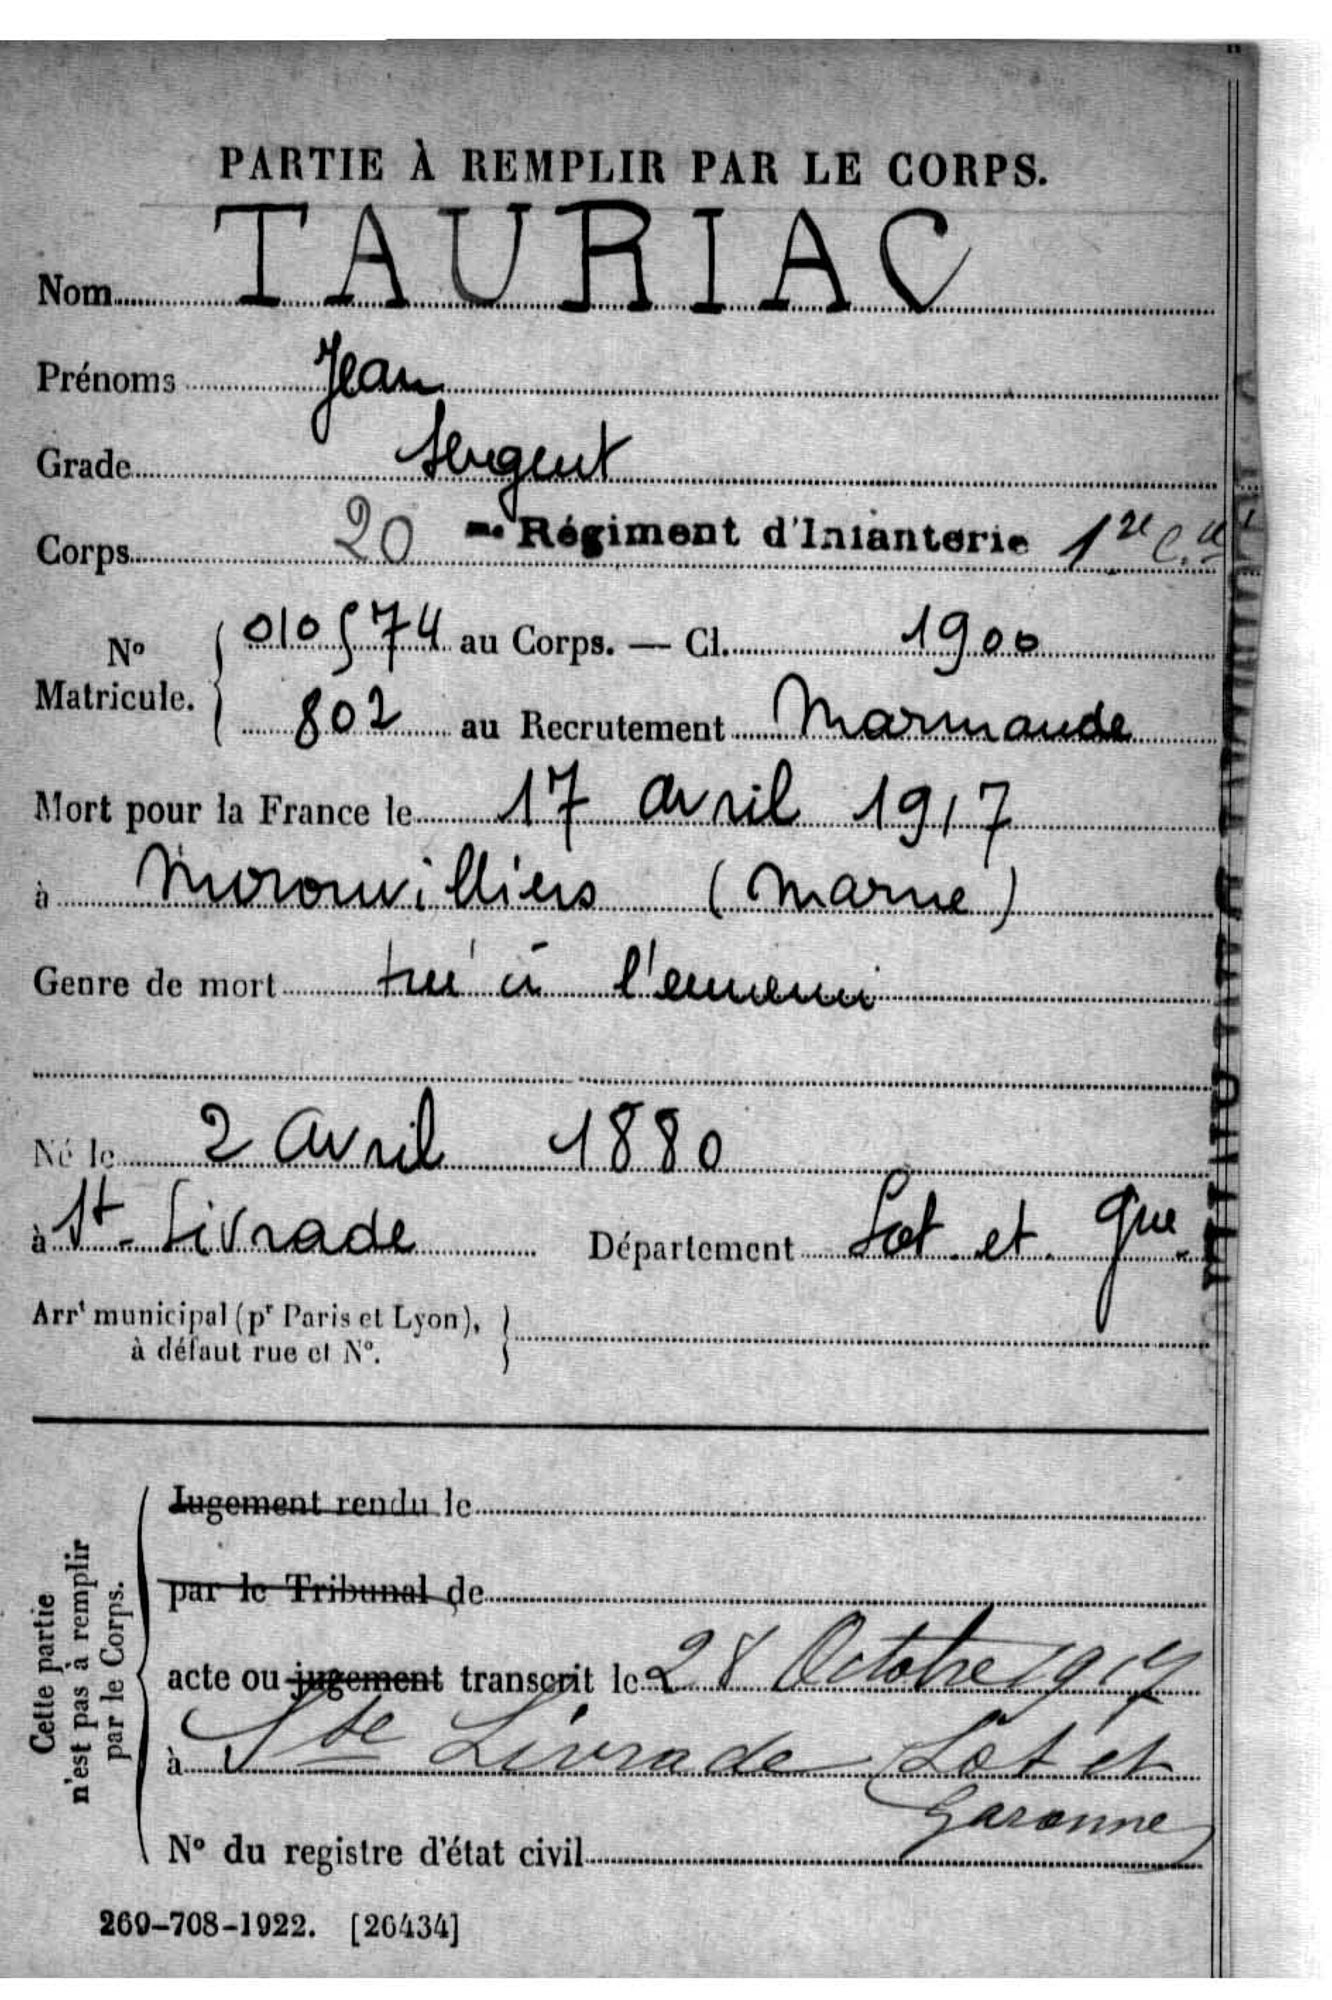 PARTIE À REMPLIR PAR LE CORPS.
Nom TAURIAC
Prénoms Jean
Grade Sergent
Corps 20 me Régiment d'Infanterie 1re Cie
No Maticule. 010574 au Corps. — Cl. 1900
802 au Recrutement Marmande
Mort pour la France le 17 avril 1917
à Moronvilliers (Marne)
Genre de mort tué à l'ennemi
Né le 2 avril 1880
à St-Livrade Département Lot et Gne
Arrt municipal (pr Paris et Lyon),
à défaut rue et No.
Cette partie
n'est pas à remplir
par le Corps.
Jugement rendu le
par le Tribunal de
acte ou jugement transcrit le 28 Octobre 1917
à Ste Livrade (Lot et
Garonne)
No du registre d'état civil
269-708-1922. [26434]